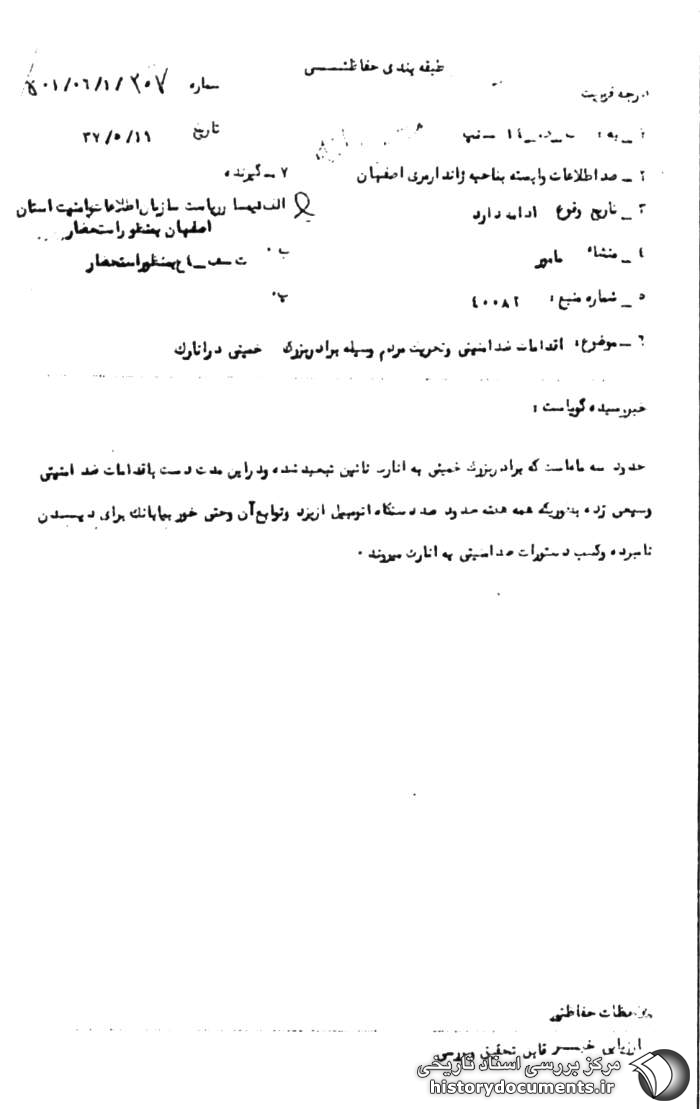 طبقه بندی حفاظتی
درجه فوریت
شماره ۵۰۱/۰۶/۱/۲۵۷
تاریخ ۳۷/۵/۱۱
۱ـ به :
۲ـ ضد اطلاعات وابسته بناحیه ژاندارمری اصفهان
۳ـ تاریخ وقوع ادامه دارد
۴ـ منشاء مامور
۵ـ شماره منبع : ۴۰۰۸۲
۷ـ گیرنده
الف تیمسار ریاست سازمان اطلاعات و امنیت استان
اصفهان بمنظور استحضار
ب۰ بمنظور استحضار
پ۰
۶ـ موضوع : اقدامات ضد امنیتی و تحریک مردم وسیله برادر بزرگ خمینی در انارک
خبر رسیده گویاست :
حدود سه ماه است که برادر بزرگ خمینی به انارک نائین تبعید شده و در این مدت دست باقدامات ضد امنیتی
وسیعی زده بطوریکه همه هفته حدود صد دستگاه اتومبیل از یزد و توابع آن و حتی خور بیابانک برای دیدن
نامبرده و کسب دستورات ضد امنیتی به انارک میروند ۰
ملاحظات حفاظتی
ارزیابی خبر قابل تحقیق و بررسی
مرکز بررسی اسناد تاریخی
historydocuments.ir